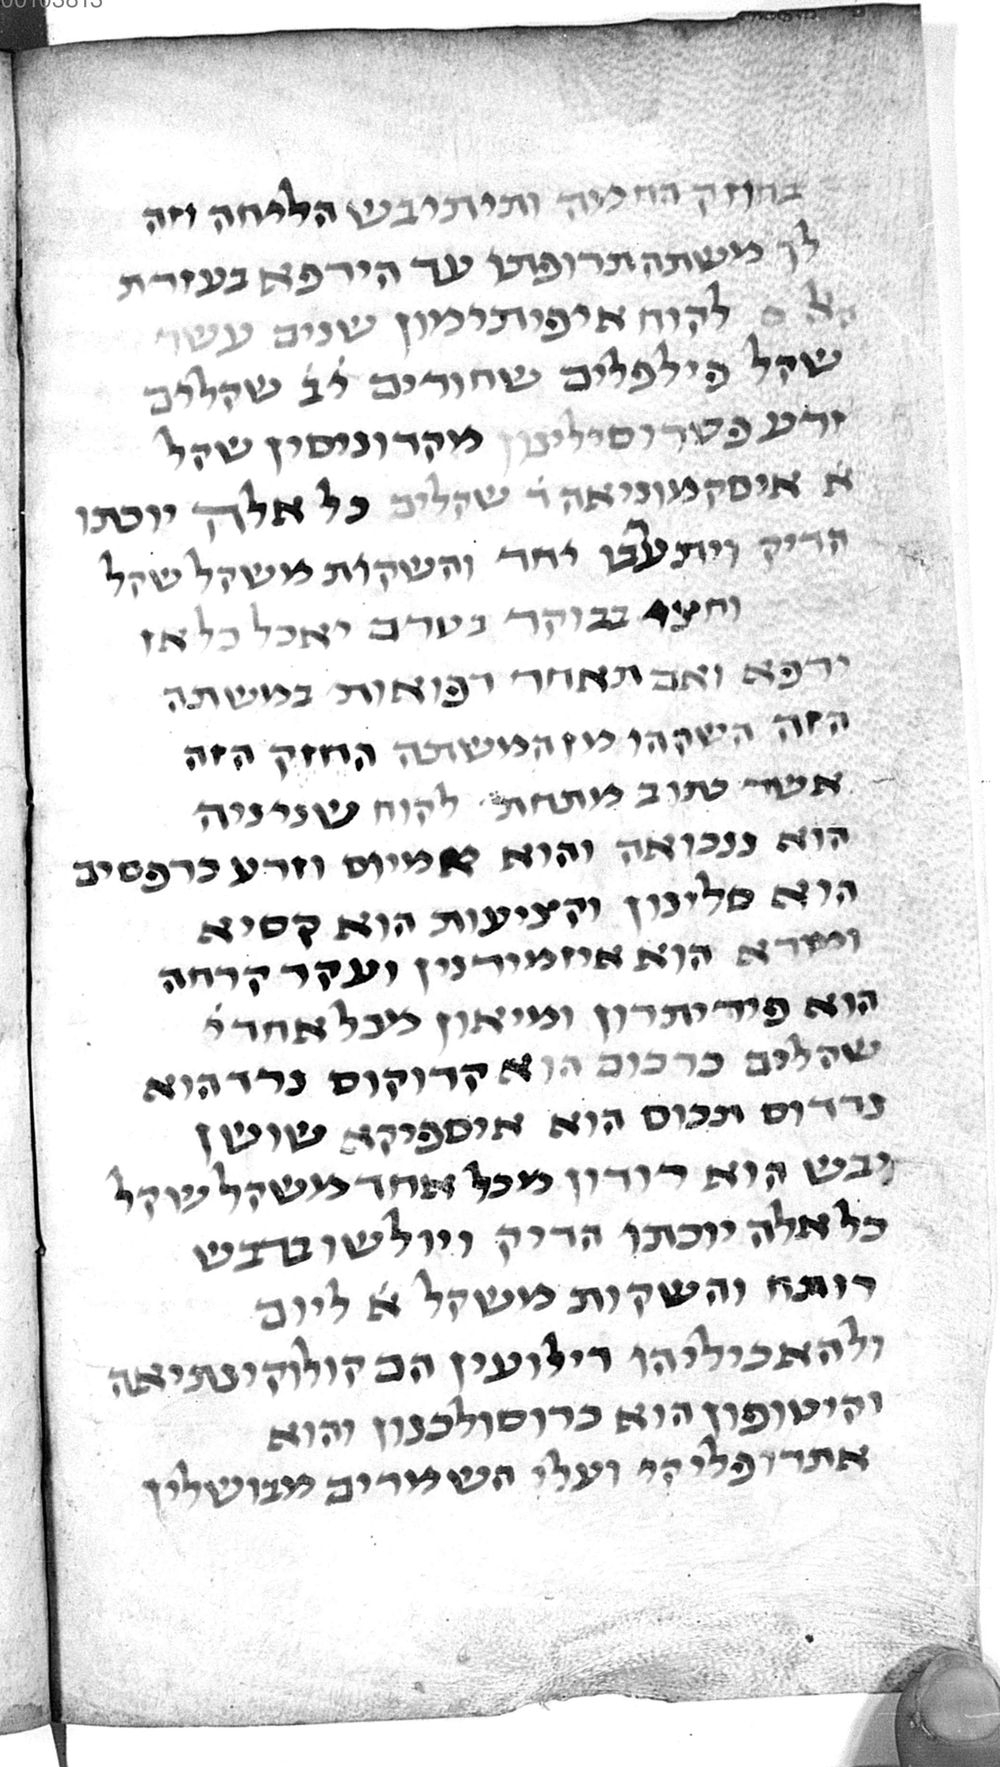 בחוזק החמה ותיתיבש הליחה וזה
לך משתה תרופתו עד הירפא בעזרת
לקוח איפיתימון שנים עשר
שקל פילפלים שחורים יב שקלים
זרע פטרוסילינון מקדוניסין שקל
א איסקמוניאה י שקלים כל אלה יוכתו
הדיק ויתערבו יחד והשקות משקל שקל
וחצי בבוקר בטרם יאכל כל אז
ירפא ואם תאחר רפואות במשתה
הזה השקהו מן המשתה החזק הזה
אשר כתוב מתחת לקוח שנינייה
הוא ננכואה והוא אמיוס וזרע כרפסים
הוא סלינון וקציעות הוא קסיא
ומורא הוא איזמירנין ועקר קרחה
הוא פיריתרון ומיאון מכל אחד י
שקלים כרכום הוא קרוקוס נרד הוא
נרדוס תכוס הוא איספיקא שושן
יבש הוא רודון מכל אחד משקל שקל
כל אלה יוכתו הדיק ויולשו בדבש
רותח והשקות משקל א ליום
ולהאכיליהו דילועין הם קולוקינתיאה
וקיטופון הוא כרוסולכנון והוא
אתרופליקי ועלי השמרים מבושלין